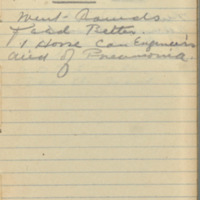 Went Rounds
Paid Bettes.
1 Horse Can Engineers
died of Pneumonia.